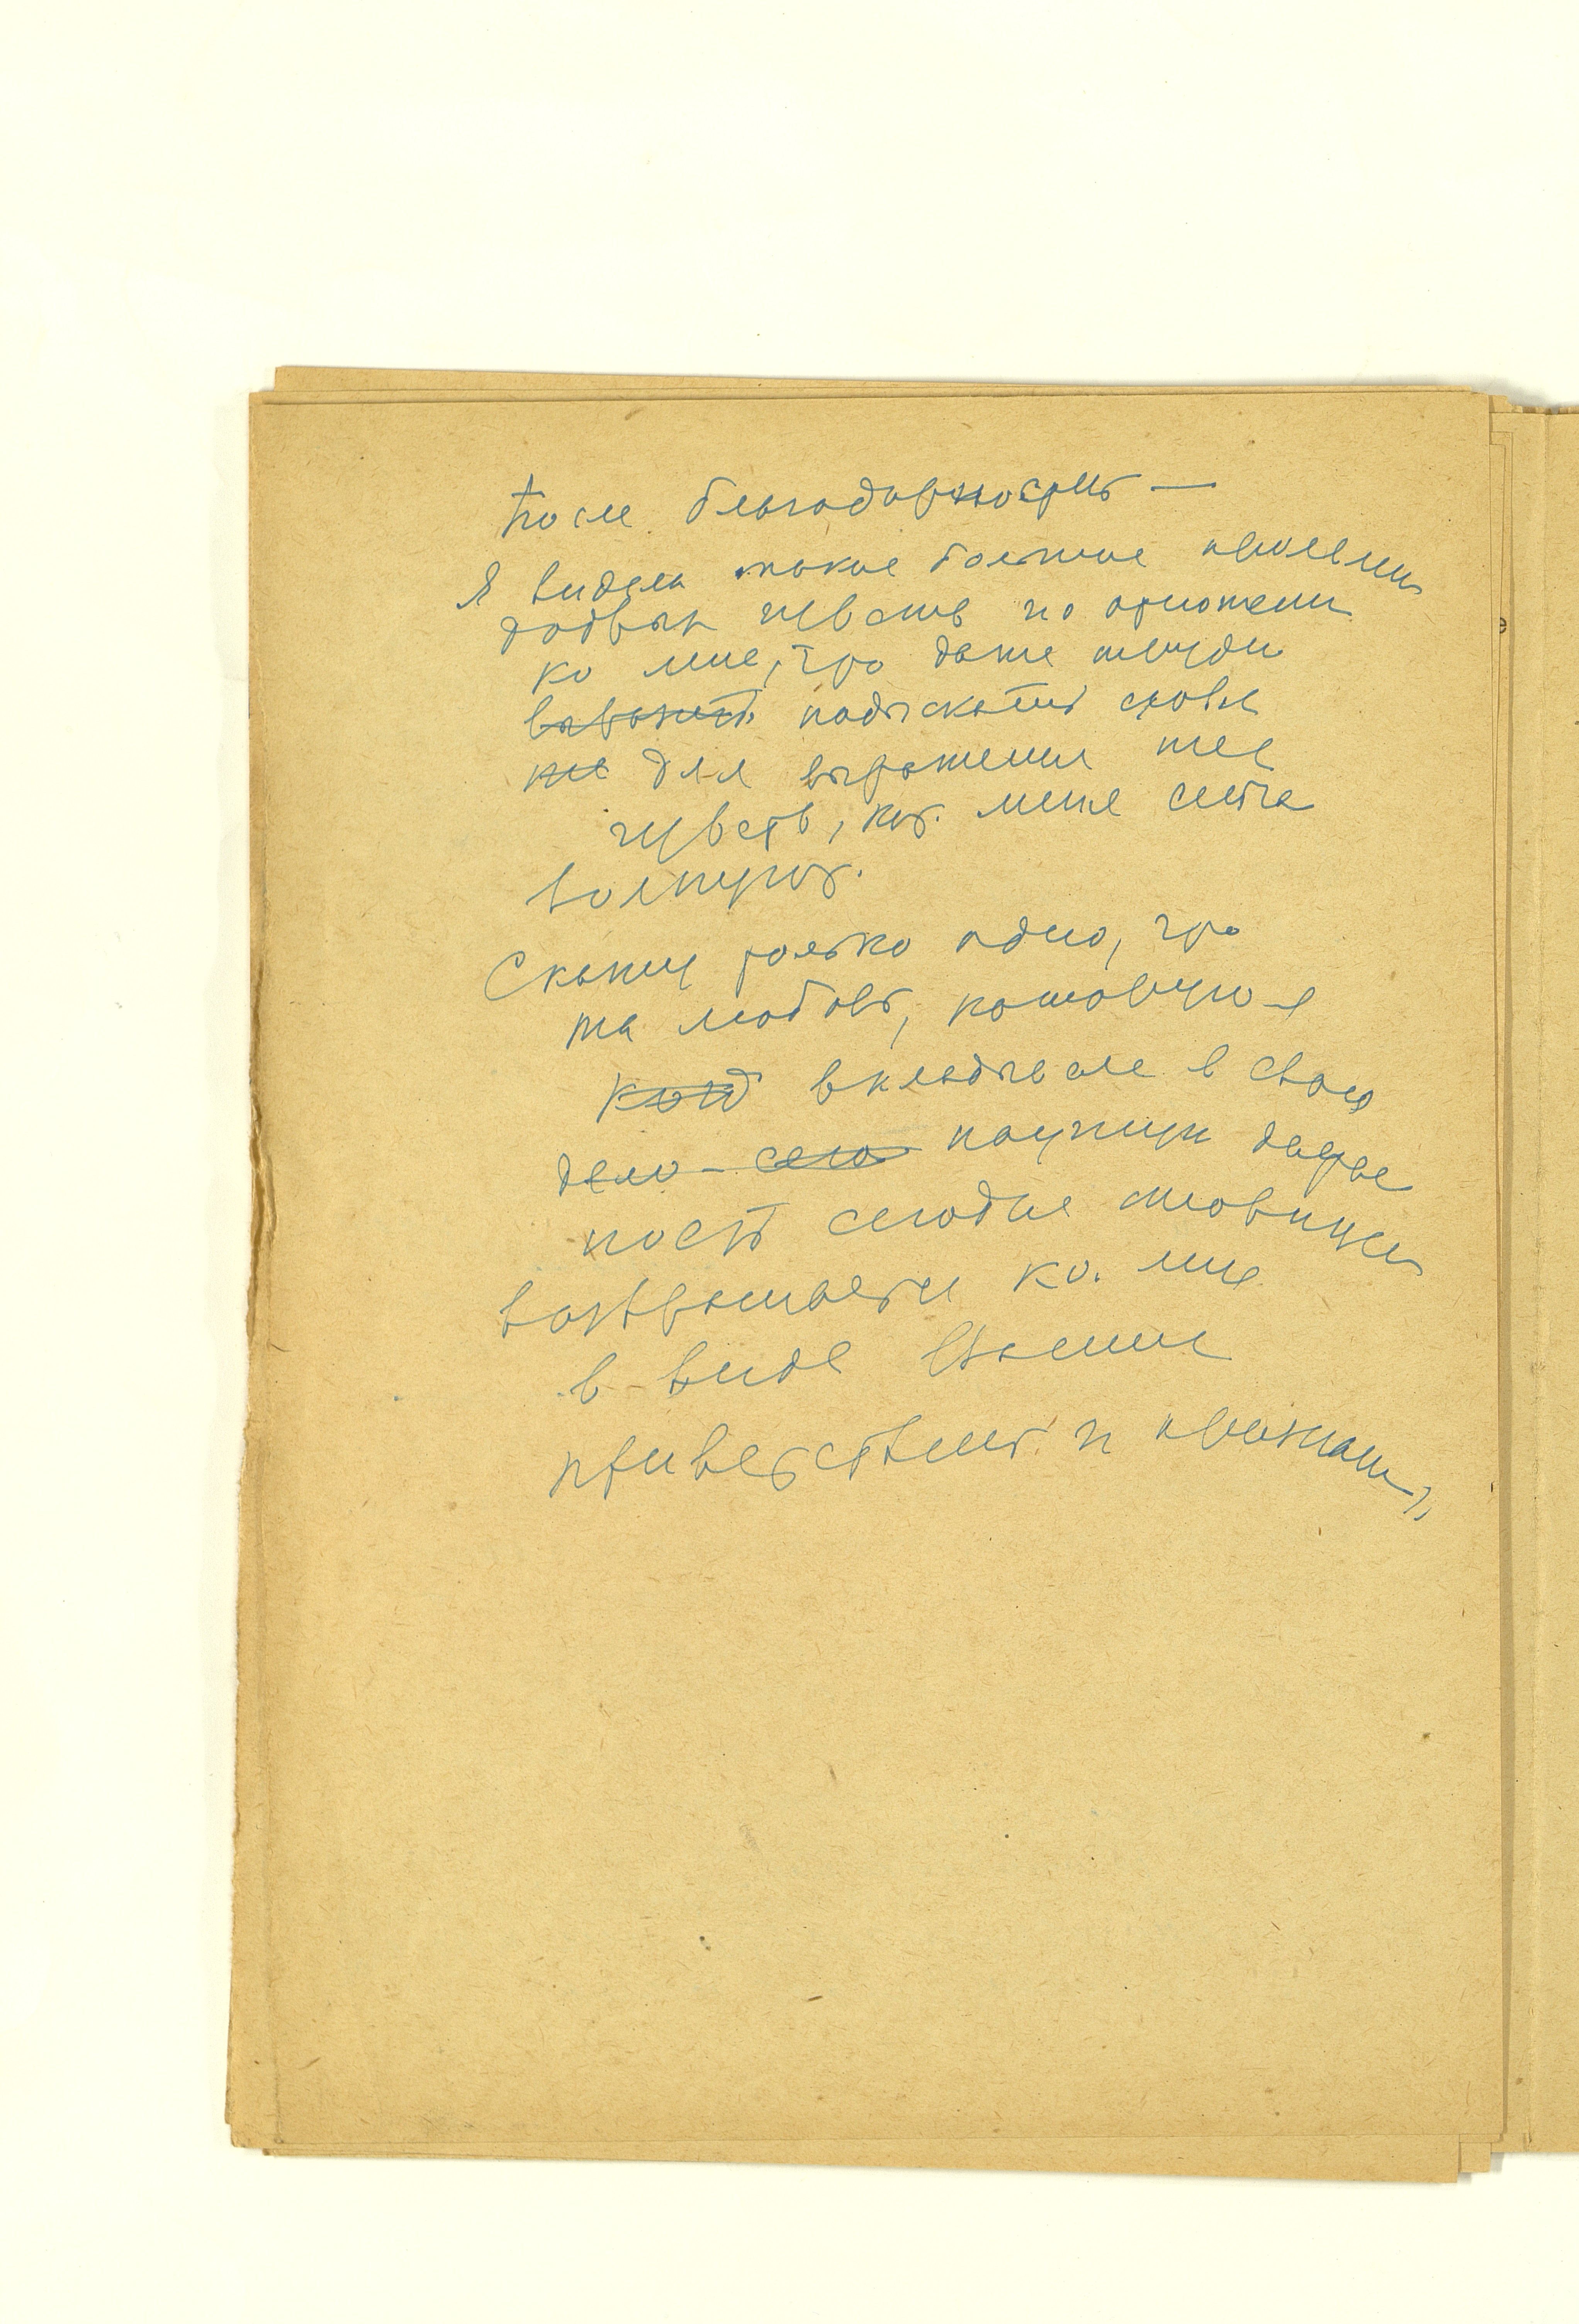 После благодарность —
Я видела такие большие проявлен
добрых чувств по отношени
ко мне, что даже трудно
выразить подыскать слова
для выражения тех
чувств, кот. меня сейча
волнуют.
Скажу только одно, что
та любовь, которую я
вкладывала в свое
дело – научную деятель
ность сегодня сторицей
возвращается ко мне
в виде Ваших
приветствий и признани,